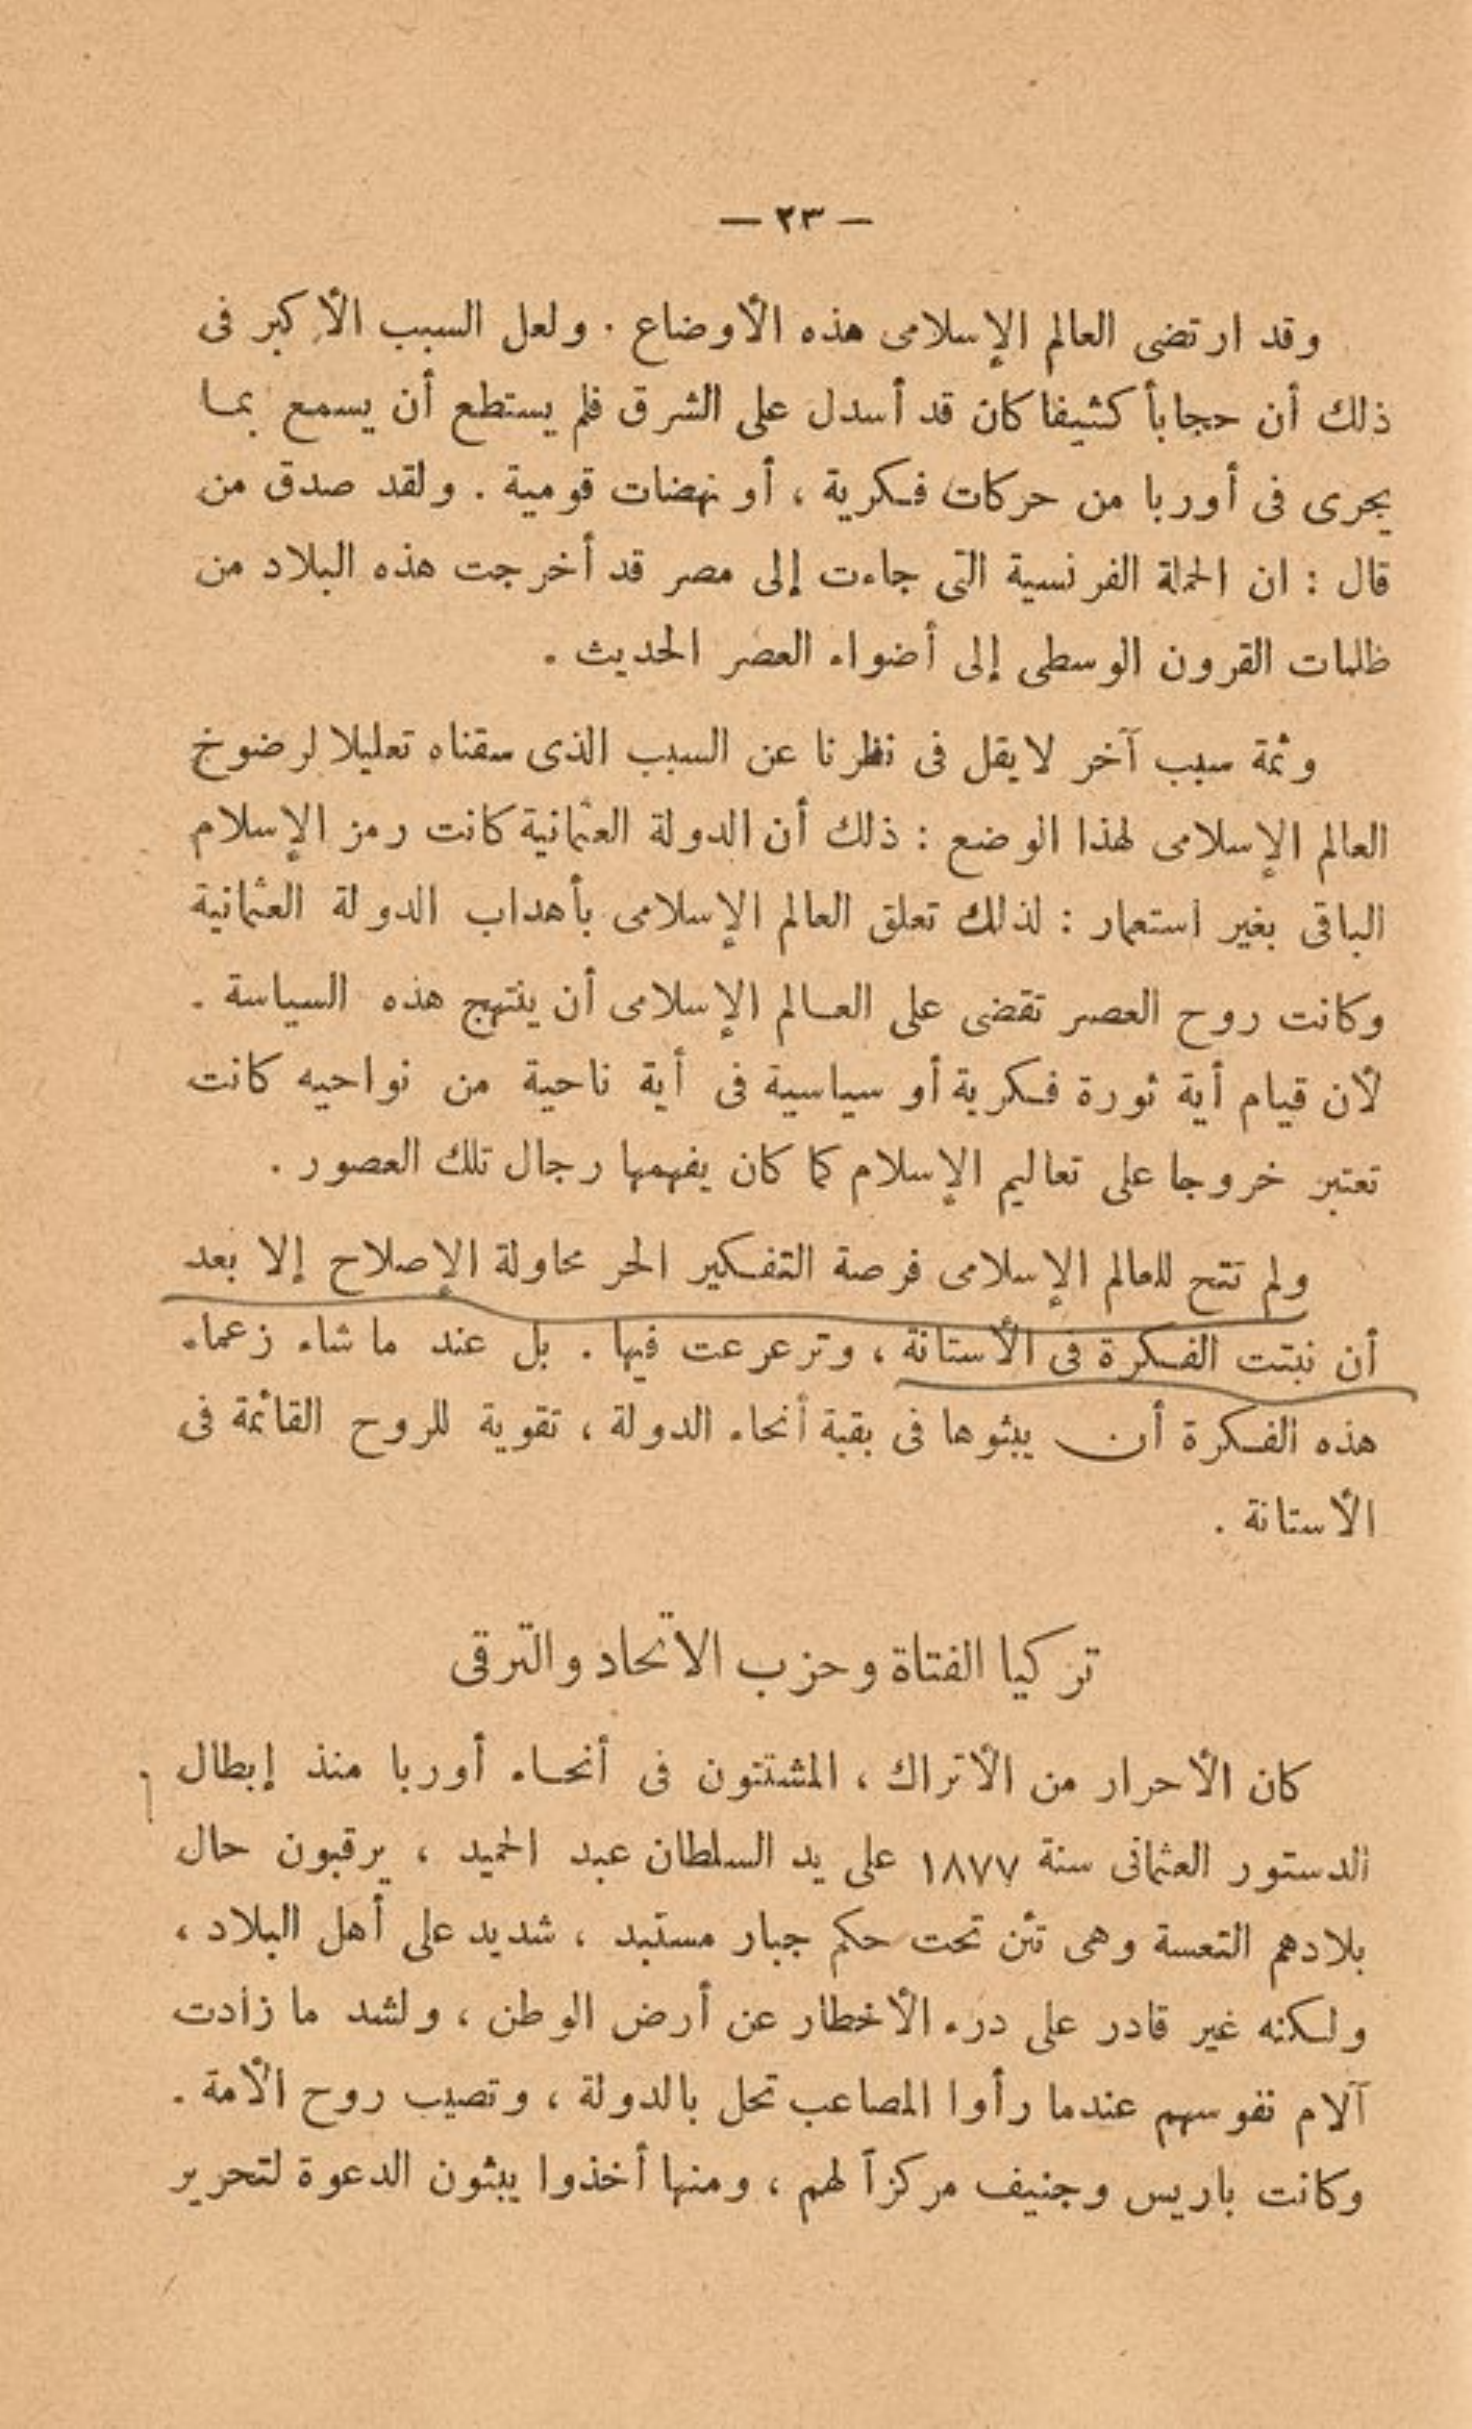 — ٢٣ —
وقد ارتضى العالم الإسلامى هذه الأوضاع . ولعل السبب الأكبر فى
ذلك أن حجاباً كثيفا كان قد أسدل على الشرق فلم يستطع أن يسمع بما
يجرى فى أوربا من حركات فكرية ، أو نهضات قومية . ولقد صدق من
قال : ان الحملة الفرنسية التى جاءت إلى مصر قد أخرجت هذه البلاد من
ظلمات القرون الوسطى إلى أضواء العصر الحديث .
وثمة سبب آخر لا يقل فى نظرنا عن السبب الذى سقناه تعليلا لرضوخ
العالم الإسلامى لهذا الوضع : ذلك أن الدولة العثمانية كانت رمز الإسلام
الباقى بغير استعمار : لذلك تعلق العالم الإسلامى بأهداب الدولة العثمانية
وكانت روح العصر تقضى على العالم الإسلامى أن ينتهج هذه السياسة .
لأن قيام أية ثورة فكرية أو سياسية فى أية ناحية من نواحيه كانت
تعتبر خروجا على تعاليم الإسلام كما كان يفهمها رجال تلك العصور .
ولم تتح للعالم الإسلامى فرصة التفكير الحر محاولة الإصلاح إلا بعد
أن نبتت الفكرة فى الأستانة ، وترعرعت فيها . بل عند ما شاء زعماء
هذه الفكرة أن يبثوها فى بقية أنحاء الدولة ، تقوية للروح القائمة فى
الأستانة .
تركيا الفتاة وحزب الاتحاد والترقى
كان الأحرار من الأتراك ، المشتتون فى أنحاء أوربا منذ إبطال
الدستور العثمانى سنة ١٨٧٧ على يد السلطان عبد الحميد ، يرقبون حال
بلادهم التعسة وهى تئن تحت حكم جبار مستبد ، شديد على أهل البلاد ،
ولكنه غير قادر على درء الأخطار عن أرض الوطن ، ولشد ما زادت
آلام نفوسهم عندما رأوا المصاعب تحل بالدولة ، وتصيب روح الأمة .
وكانت باريس وجنيف مركزاً لهم ، ومنها أخذوا يبثون الدعوة لتحرير